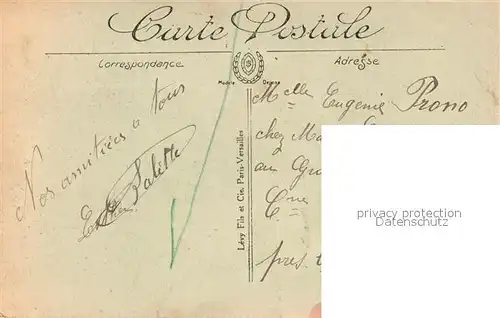 Carte Postale
Correspondance
Adresse
Modèle Déposé
Nos amitiés à tous
Lévy Fils et Cie, Paris-Versailles
Melle Eugenie Prono
chez
au
Cne
près
privacy protection
Datenschutz